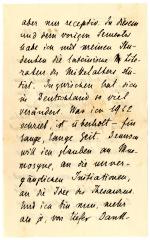 aber nur receptiv. In diesem
und dem vorigen Semester
habe ich mit meinen Stu-
denten die lateinische
des Mittelalters
. Inzwischen hat sich
in Deutschland so viel
verändert. Was ich 1932
schrieb, ist überholt – für
lange, lange Zeit. Dennoch
will ich glauben an
, an die unver-
gänglichen Initiationen,
an die Idee des Thesaurus.
Und ich bin neu, mehr
als je, von tiefer Dank-